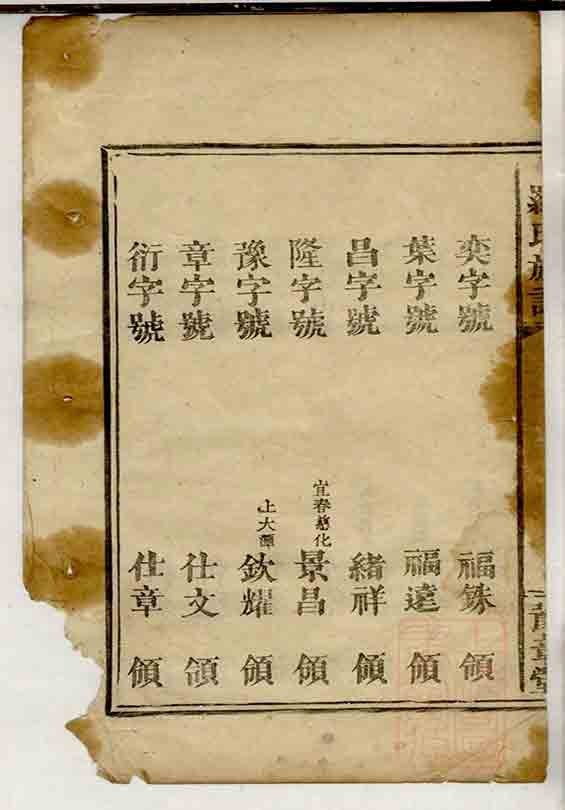 羅氏族譜
奕字號 福銖 領
葉字號 福達 領
昌字號 緒祥 領
隆字號 宜春慈化 景昌 領
豫字號 上大潭 欽耀 領
章字號 仕文 領
衍字號 仕章 領